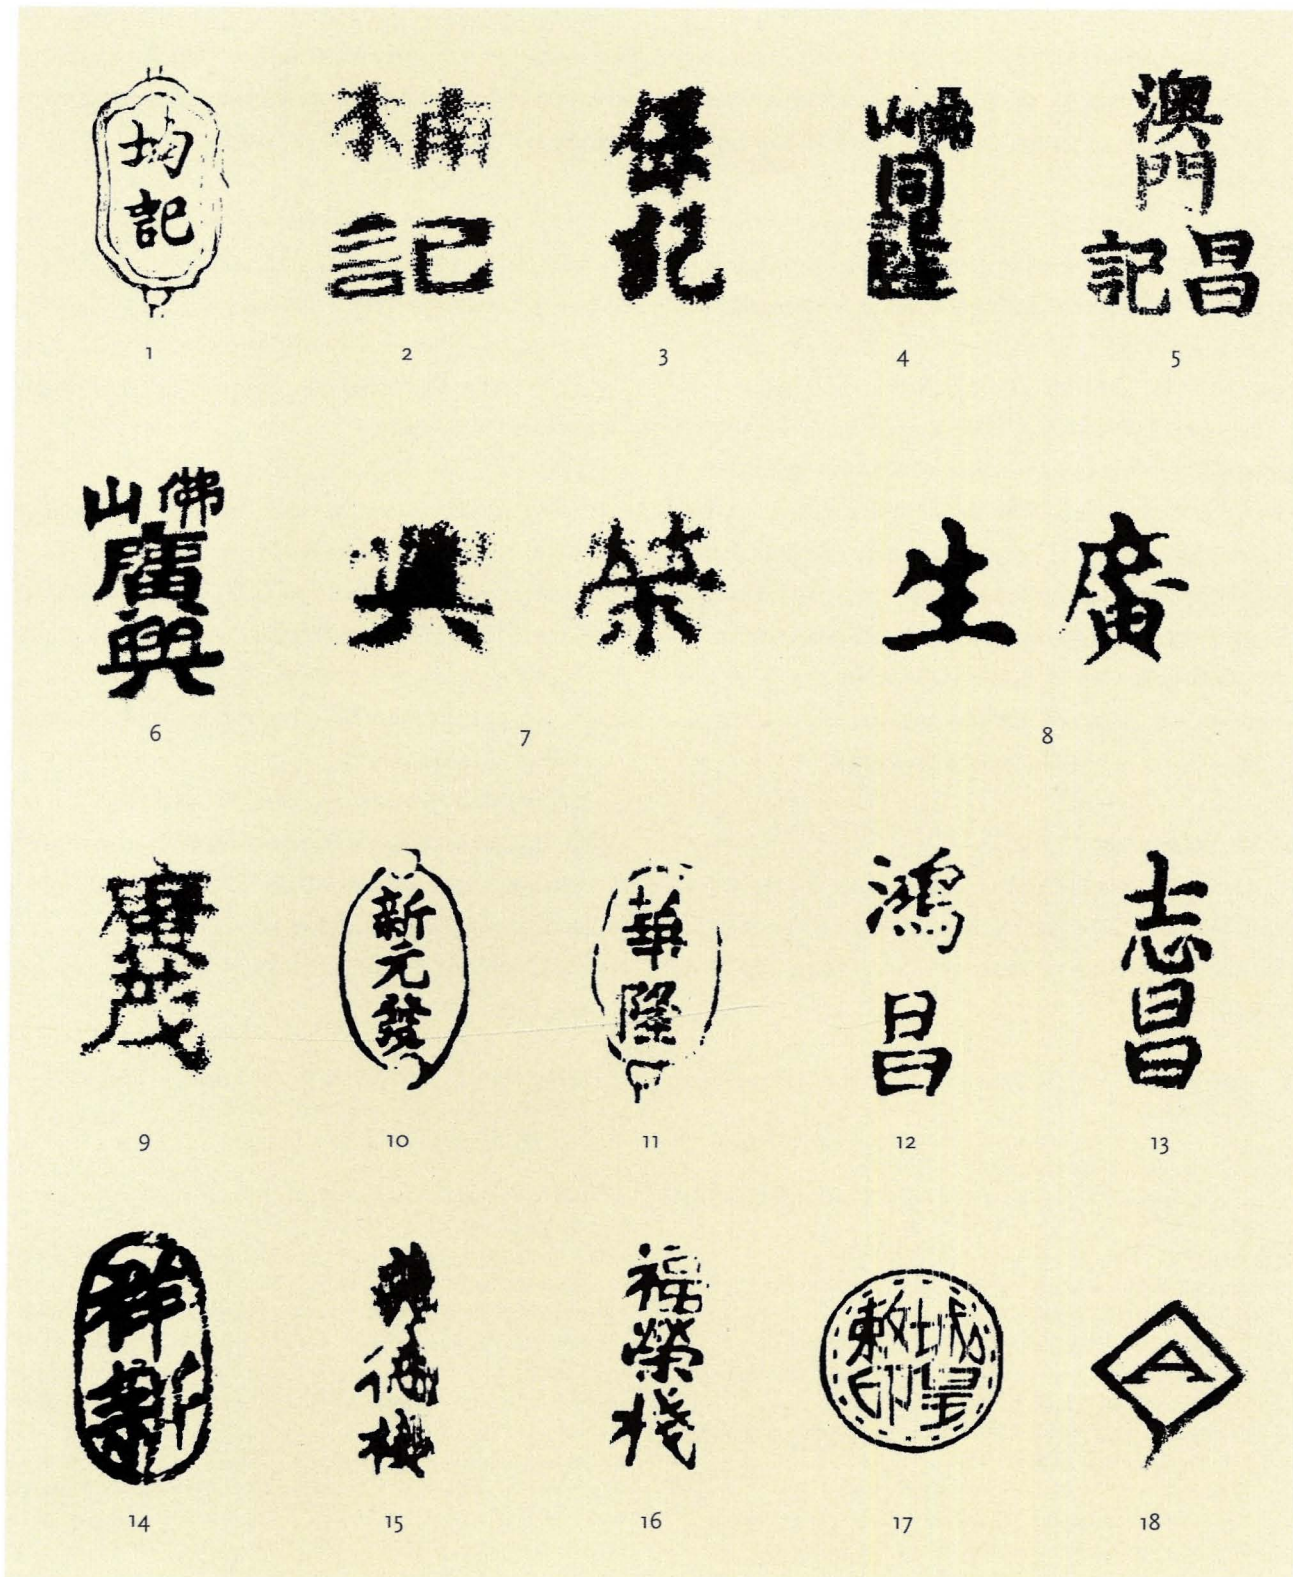 均記
1
楠記
2
保記
3
佛山
同
4
澳門
昌記
5
佛山
廣興
6
榮興
7
廣生
8
廣茂
9
新元發
10
華隆
11
鴻昌
12
志昌
13
祥新
14
15
福榮棧
16
城隍敕印
17
A
18